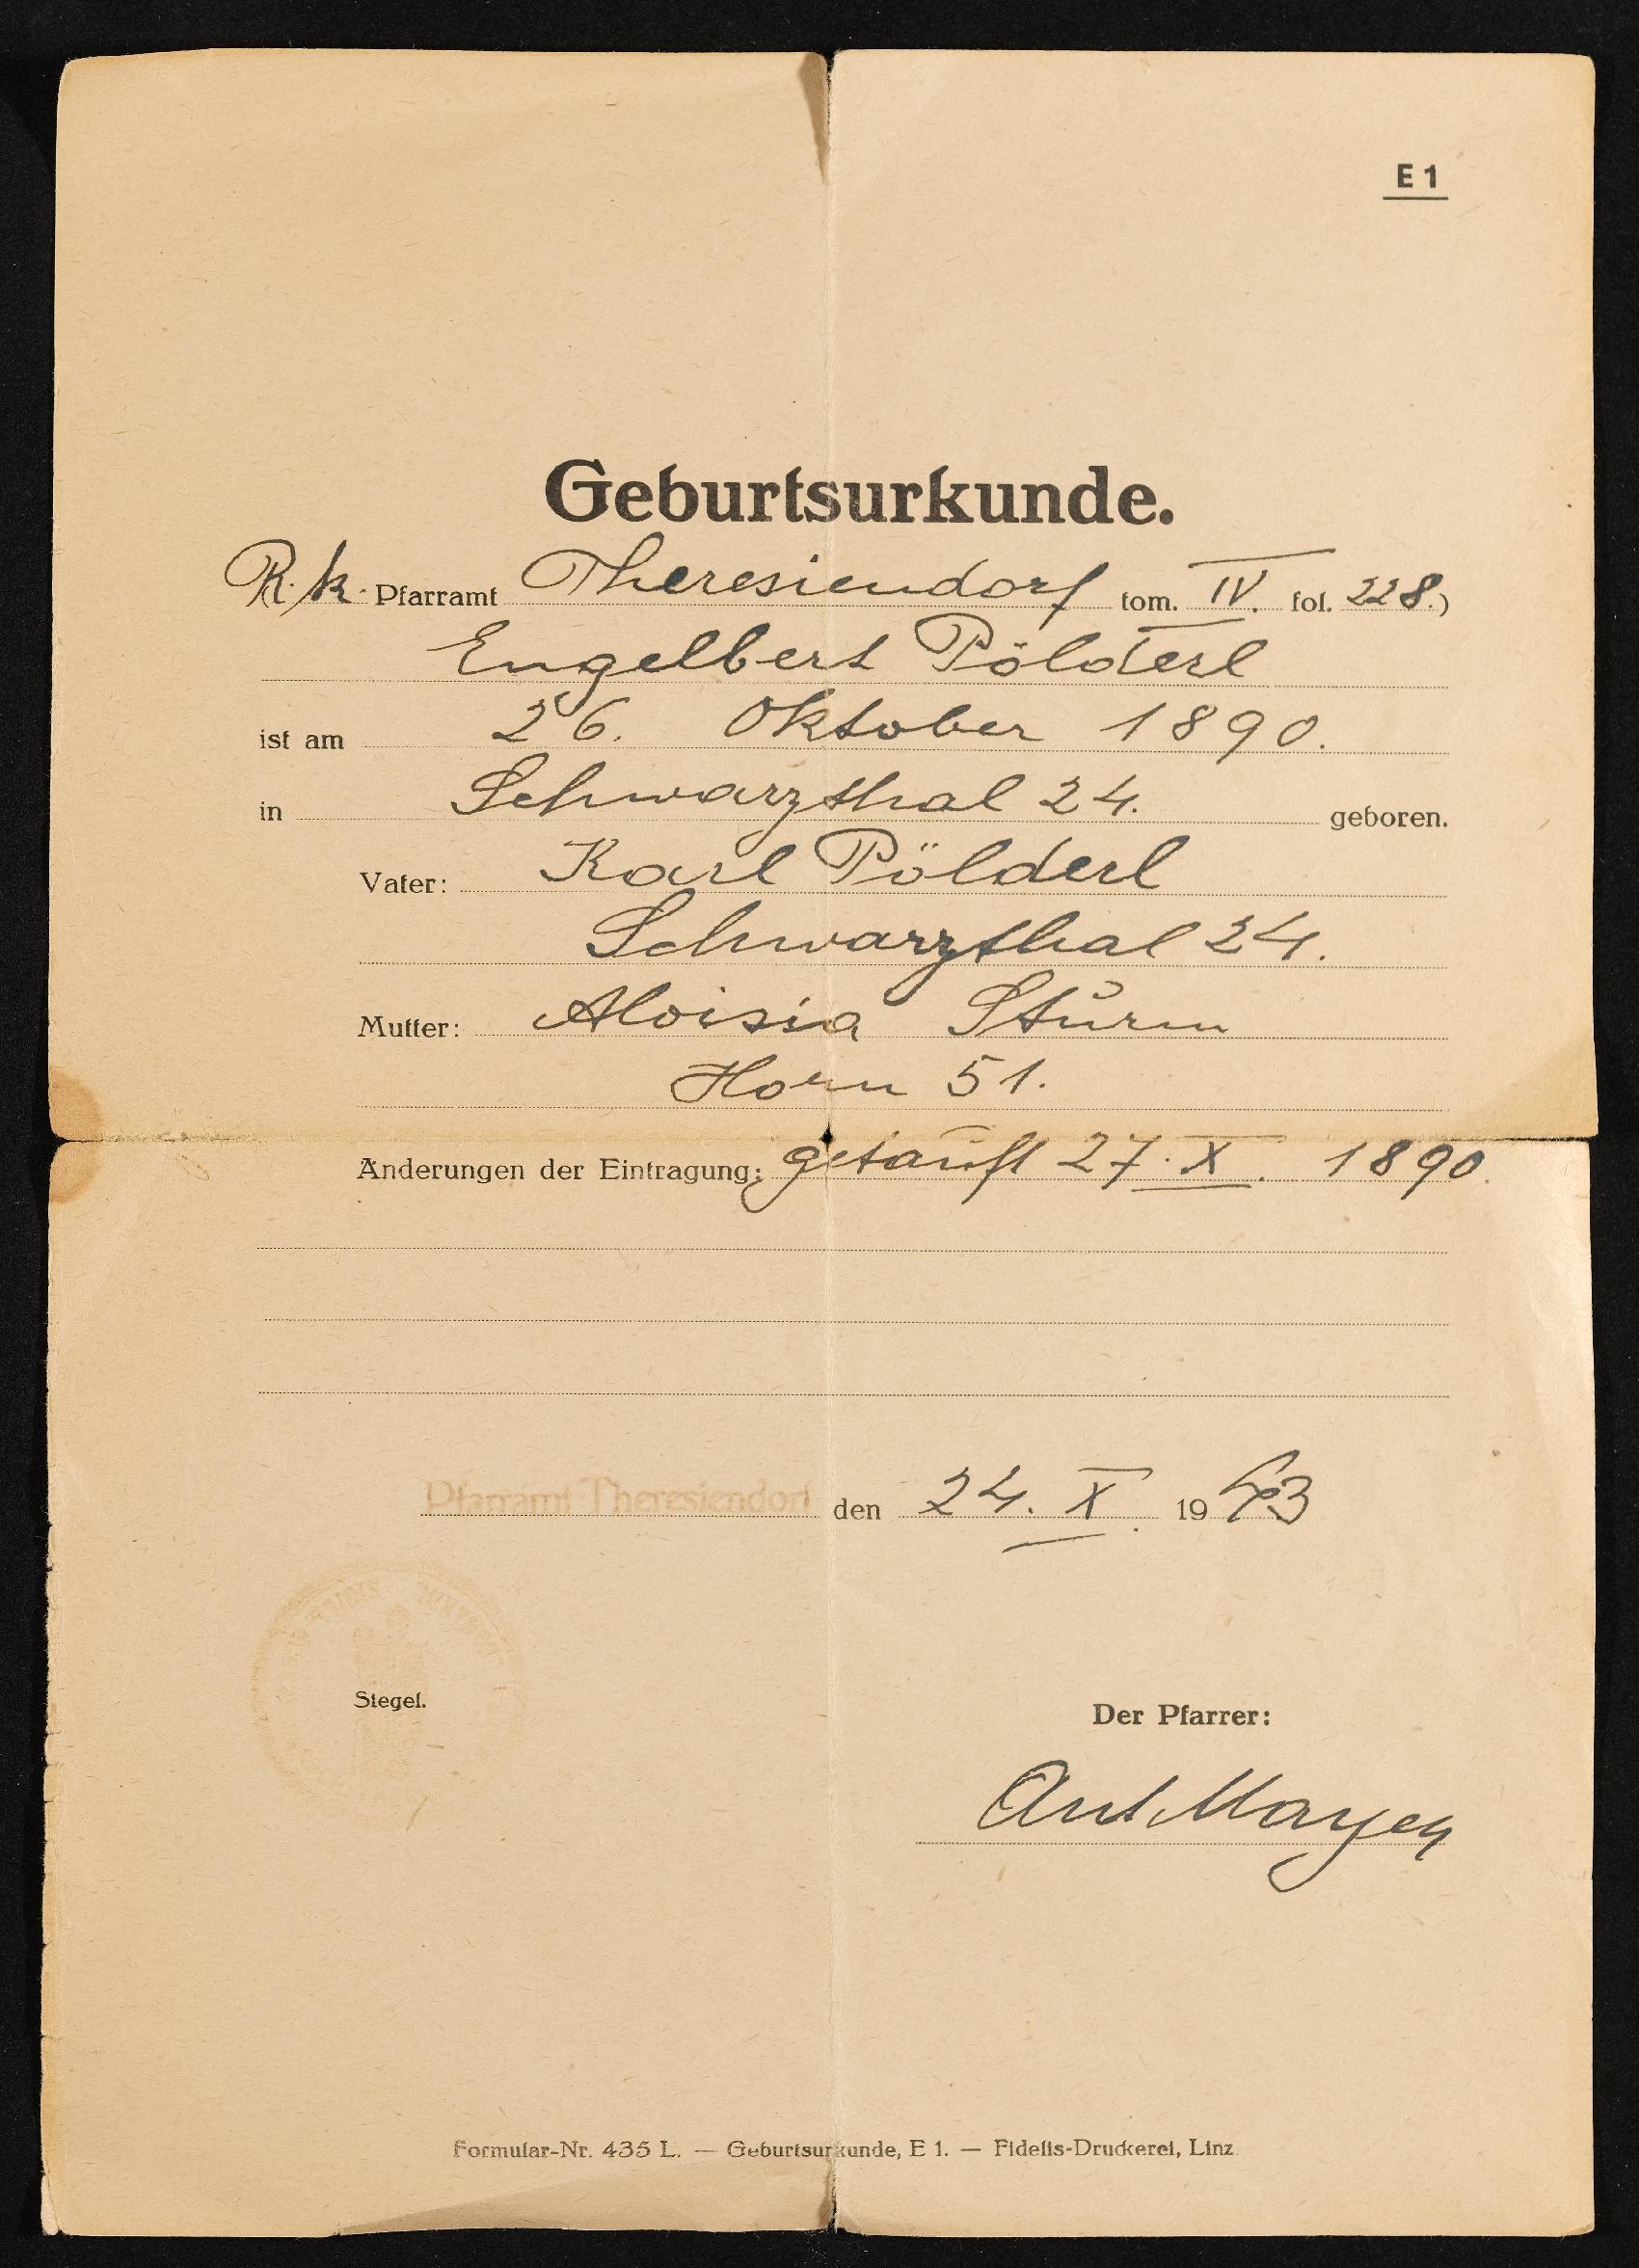 E 1
Geburtsurkunde.
R. k. Pfarramt Theresiendorf tom. IV. fol. 228.)
Engelbert Pölderl
ist am 26. Oktober 1890.
in Schwarzthal 24. geboren.
Vater: Karl Pölderl
Schwarzthal 24.
Mutter: Aloisia Sturm
Horn 51.
Änderungen der Eintragung: getauft 27. X. 1890.
Pfarramt Theresiendorf den 24. X. 1943
Siegel.
Der Pfarrer:
Ant. Mayer
Formular-Nr. 435 L. — Geburtsurkunde, E 1. — Fidelis-Druckerei, Linz